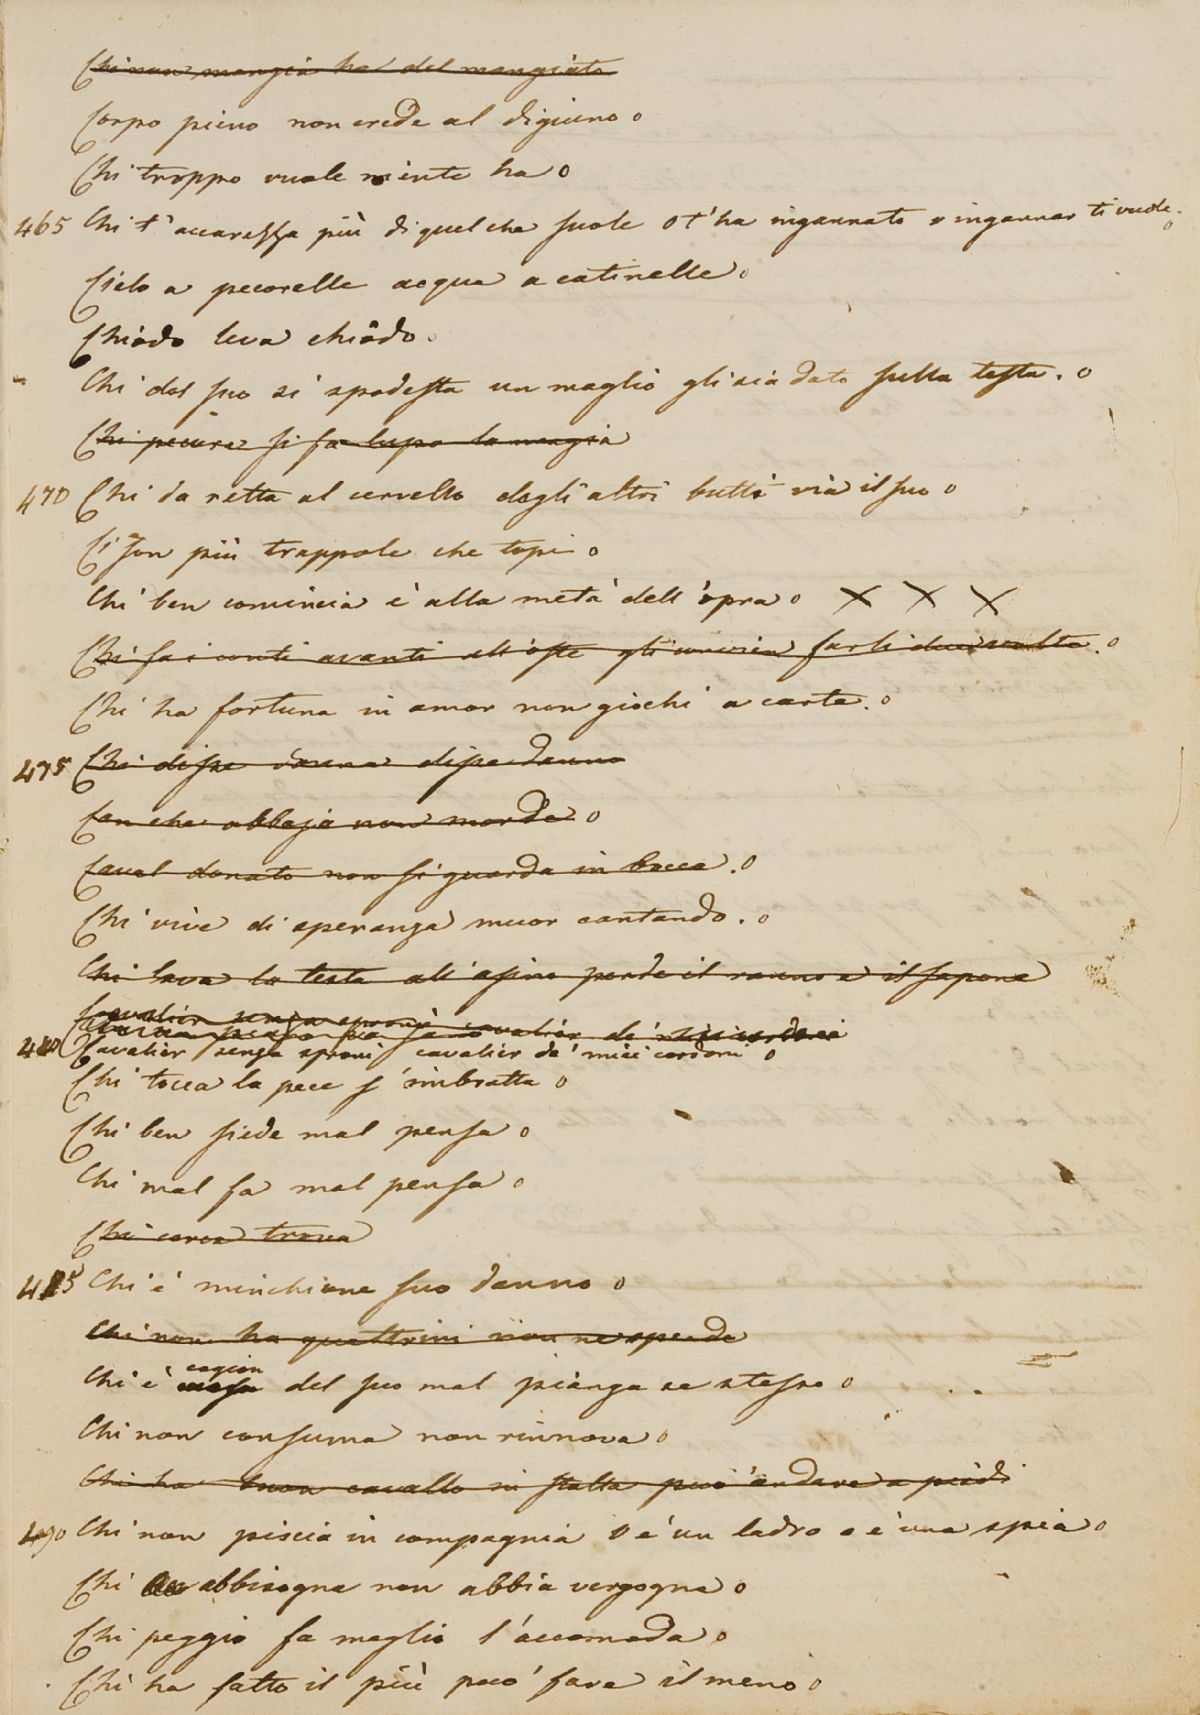 Chi non mangia ha del mangiato
Corpo pieno non crede al digiuno o
Chi troppo vuole niente ha o
465 Chi t'accarezza più di quel che suole o t'ha ingannato o ingannar ti vuole. o
Cielo a pecorelle acqua a catinelle o
Chiòdo leva chiòdo o
Chi del suo si spodesta un maglio gli sia dato sulla testa. o
Chi pecora si fa lupo la mangia
470 Chi da retta al cervello degli altri butti via il suo o
Ci son più trappole che topi o
Chi ben comincia è alla metà dell'opra o X X X
Chi fa i conti avanti all'oste gli convien farli due volte. o
Chi ha fortuna in amor non giochi a carte. o
475 Chi disse donna disse danno
Can che abbaja non morde o
Caval donato non si guarda in bocca. o
Chi vive di speranza muor cantando. o
Chi lava la testa all'asino perde il ranno e il sapone
Cavalier senza sproni cavalier de' miei cordoni
480 Cavalier senza sproni cavalier de' miei cordoni o
Chi tocca la pece s'imbratta o
Chi ben siede mal pensa o
Chi mal fa mal pensa o
Chi cerca trova
485 Chi è minchione suo danno o
Chi non ha quattrini non ne spende
cagion
Chi è causa del suo mal pianga se stesso o
Chi non consuma non rinnova o
Chi ha buon cavallo in stalla può andare a piedi
490 Chi non piscia in compagnia o è un ladro o è una spia o
Chi abbisogna non abbia vergogna o
Chi peggio fa meglio l'accomoda o
Chi ha fatto il più può fare il meno o